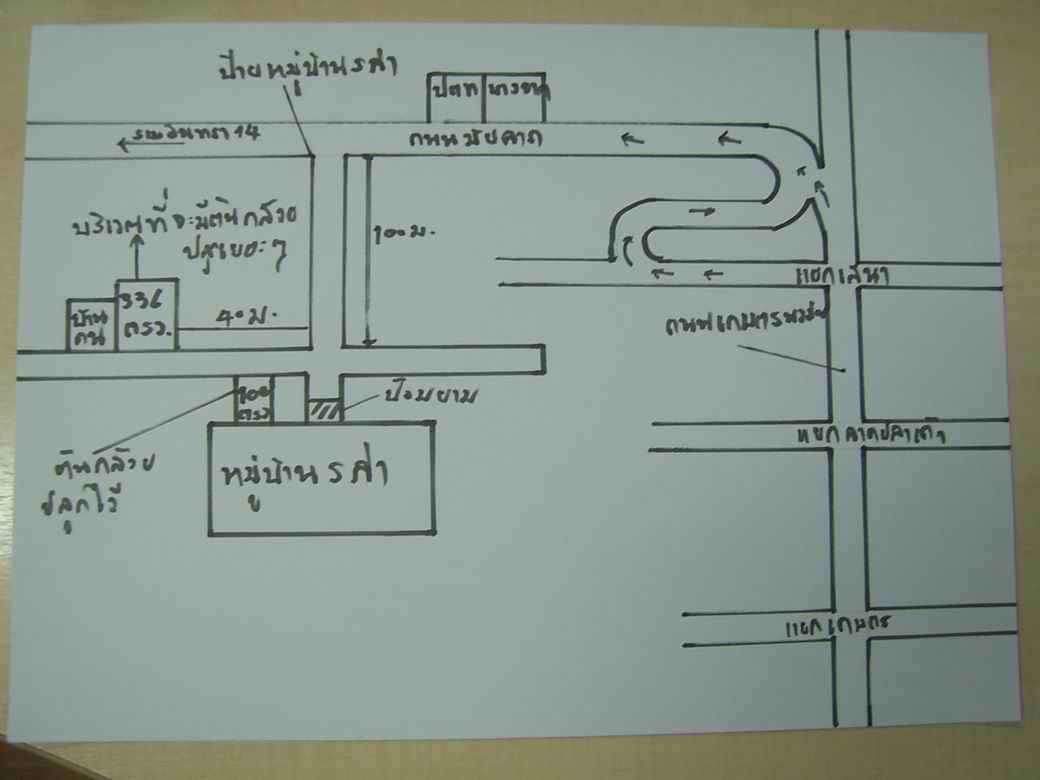 ป้ายหมู่บ้านรสา
ปตท บางจาก
รามอินทรา 14
ถนนมัยลาภ
บริเวณที่จะมีต้นกล้วย
ปลูเยอะๆ
100 ม.
แยกเสนา
336
ตรว.
บ้าน
คน
40 ม.
ถนนเกษตรนวมิน
100
ตรว
ป้อมยาม
แยกลาดปลาเค้า
ต้นกล้วย
ปลูกไว้
หมู่บ้านรสา
แยกเกษตร